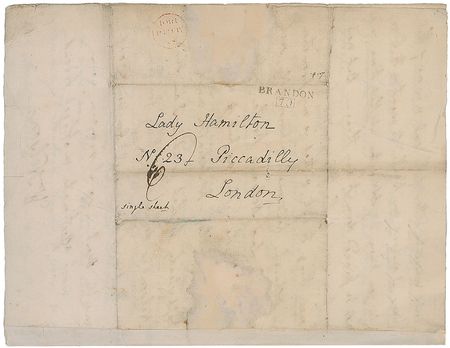 BRANDON
Lady Hamilton
No. 23 Piccadilly
London.
single sheet